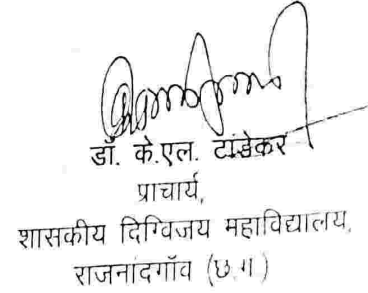 डॉ. के.एल. टांडेकर
प्राचार्य,
शासकीय दिग्विजय महाविद्यालय,
राजनांदगॉव (छ.ग.)